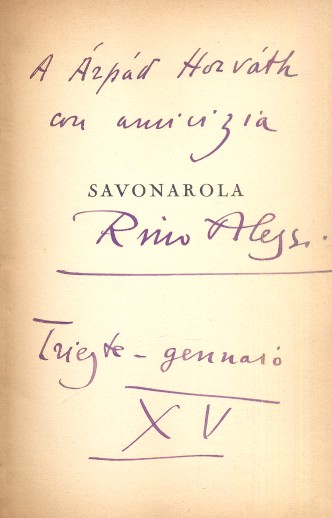 A Árpád Horváth
con amicizia
SAVONAROLA
Rino Alessi.
Trieste - gennaio
XV